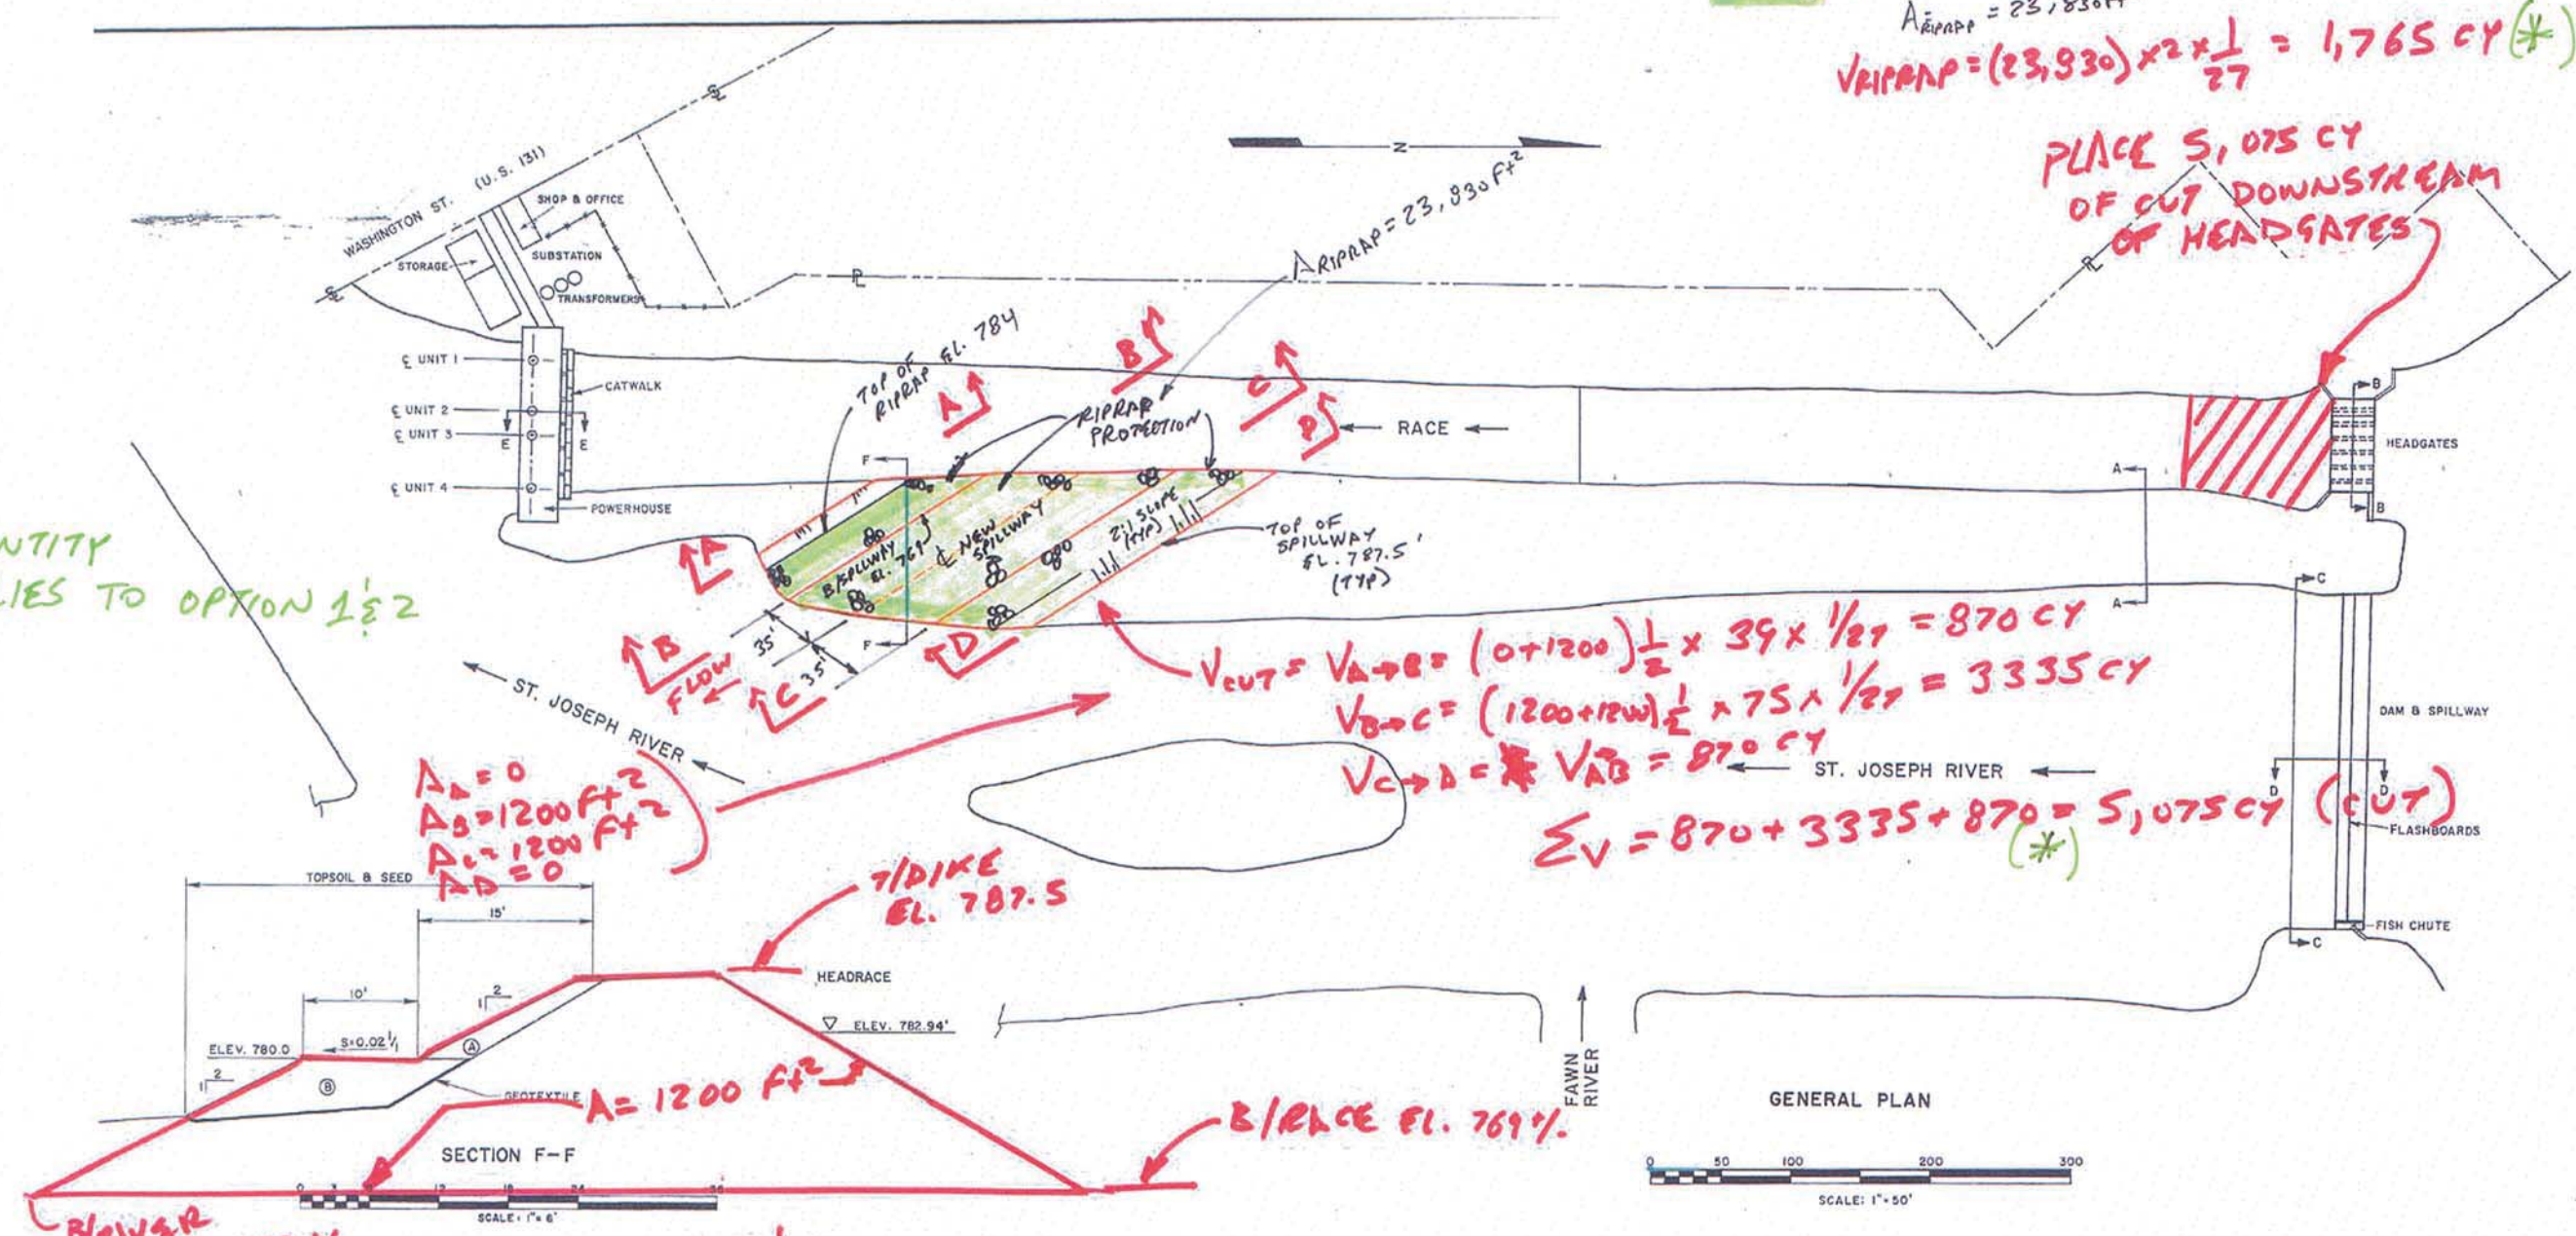 A RIPRAP = 23,830 Ft
VRIPRAP = (23,830) x 2 x 1/27 = 1,765 CY (*)
PLACE 5,075 CY
OF CUT DOWNSTREAM
OF HEADGATES
WASHINGTON ST. (U.S. 131)
SHOP & OFFICE
STORAGE
SUBSTATION
TRANSFORMERS
N
ARIPRAP = 23,830 Ft²
℄
℄
PL
PL
℄ UNIT 1
℄ UNIT 2
℄ UNIT 3
℄ UNIT 4
E
E
CATWALK
POWERHOUSE
TOP OF
RIPRAP EL. 784
A
B
C
D
RIPRAP
PROTECTION
RACE
F
F
B/SPILLWAY
EL. 769
℄ NEW
SPILLWAY
2:1 SLOPE
(TYP)
TOP OF
SPILLWAY
EL. 787.5'
(TYP)
A
A
B
B
HEADGATES
NTITY
LIES TO OPTION 1 & 2
A
B
FLOW
C
D
35'
35'
ST. JOSEPH RIVER
VCUT = VA→B = (0+1200) 1/2 x 39 x 1/27 = 870 CY
VB→C = (1200+1200) 1/2 x 75 x 1/27 = 3335 CY
VC→D = VAB = 870 CY
ΣV = 870 + 3335 + 870 = 5,075 CY (CUT)
(*)
ST. JOSEPH RIVER
C
C
D
D
DAM & SPILLWAY
FLASHBOARDS
FISH CHUTE
AA = 0
AB = 1200 Ft²
AC = 1200 Ft²
AD = 0
TOPSOIL & SEED
15'
10'
T/DIKE
EL. 787.5
HEADRACE
ELEV. 782.94'
ELEV. 780.0
S=0.02 1/1
1 2
1 2
A
B
GEOTEXTILE
A = 1200 Ft²
B/RACE EL. 769 +/-
SECTION F-F
SCALE: 1"= 6'
B/RIVER
FAWN
RIVER
GENERAL PLAN
0 50 100 200 300
SCALE: 1"=50'